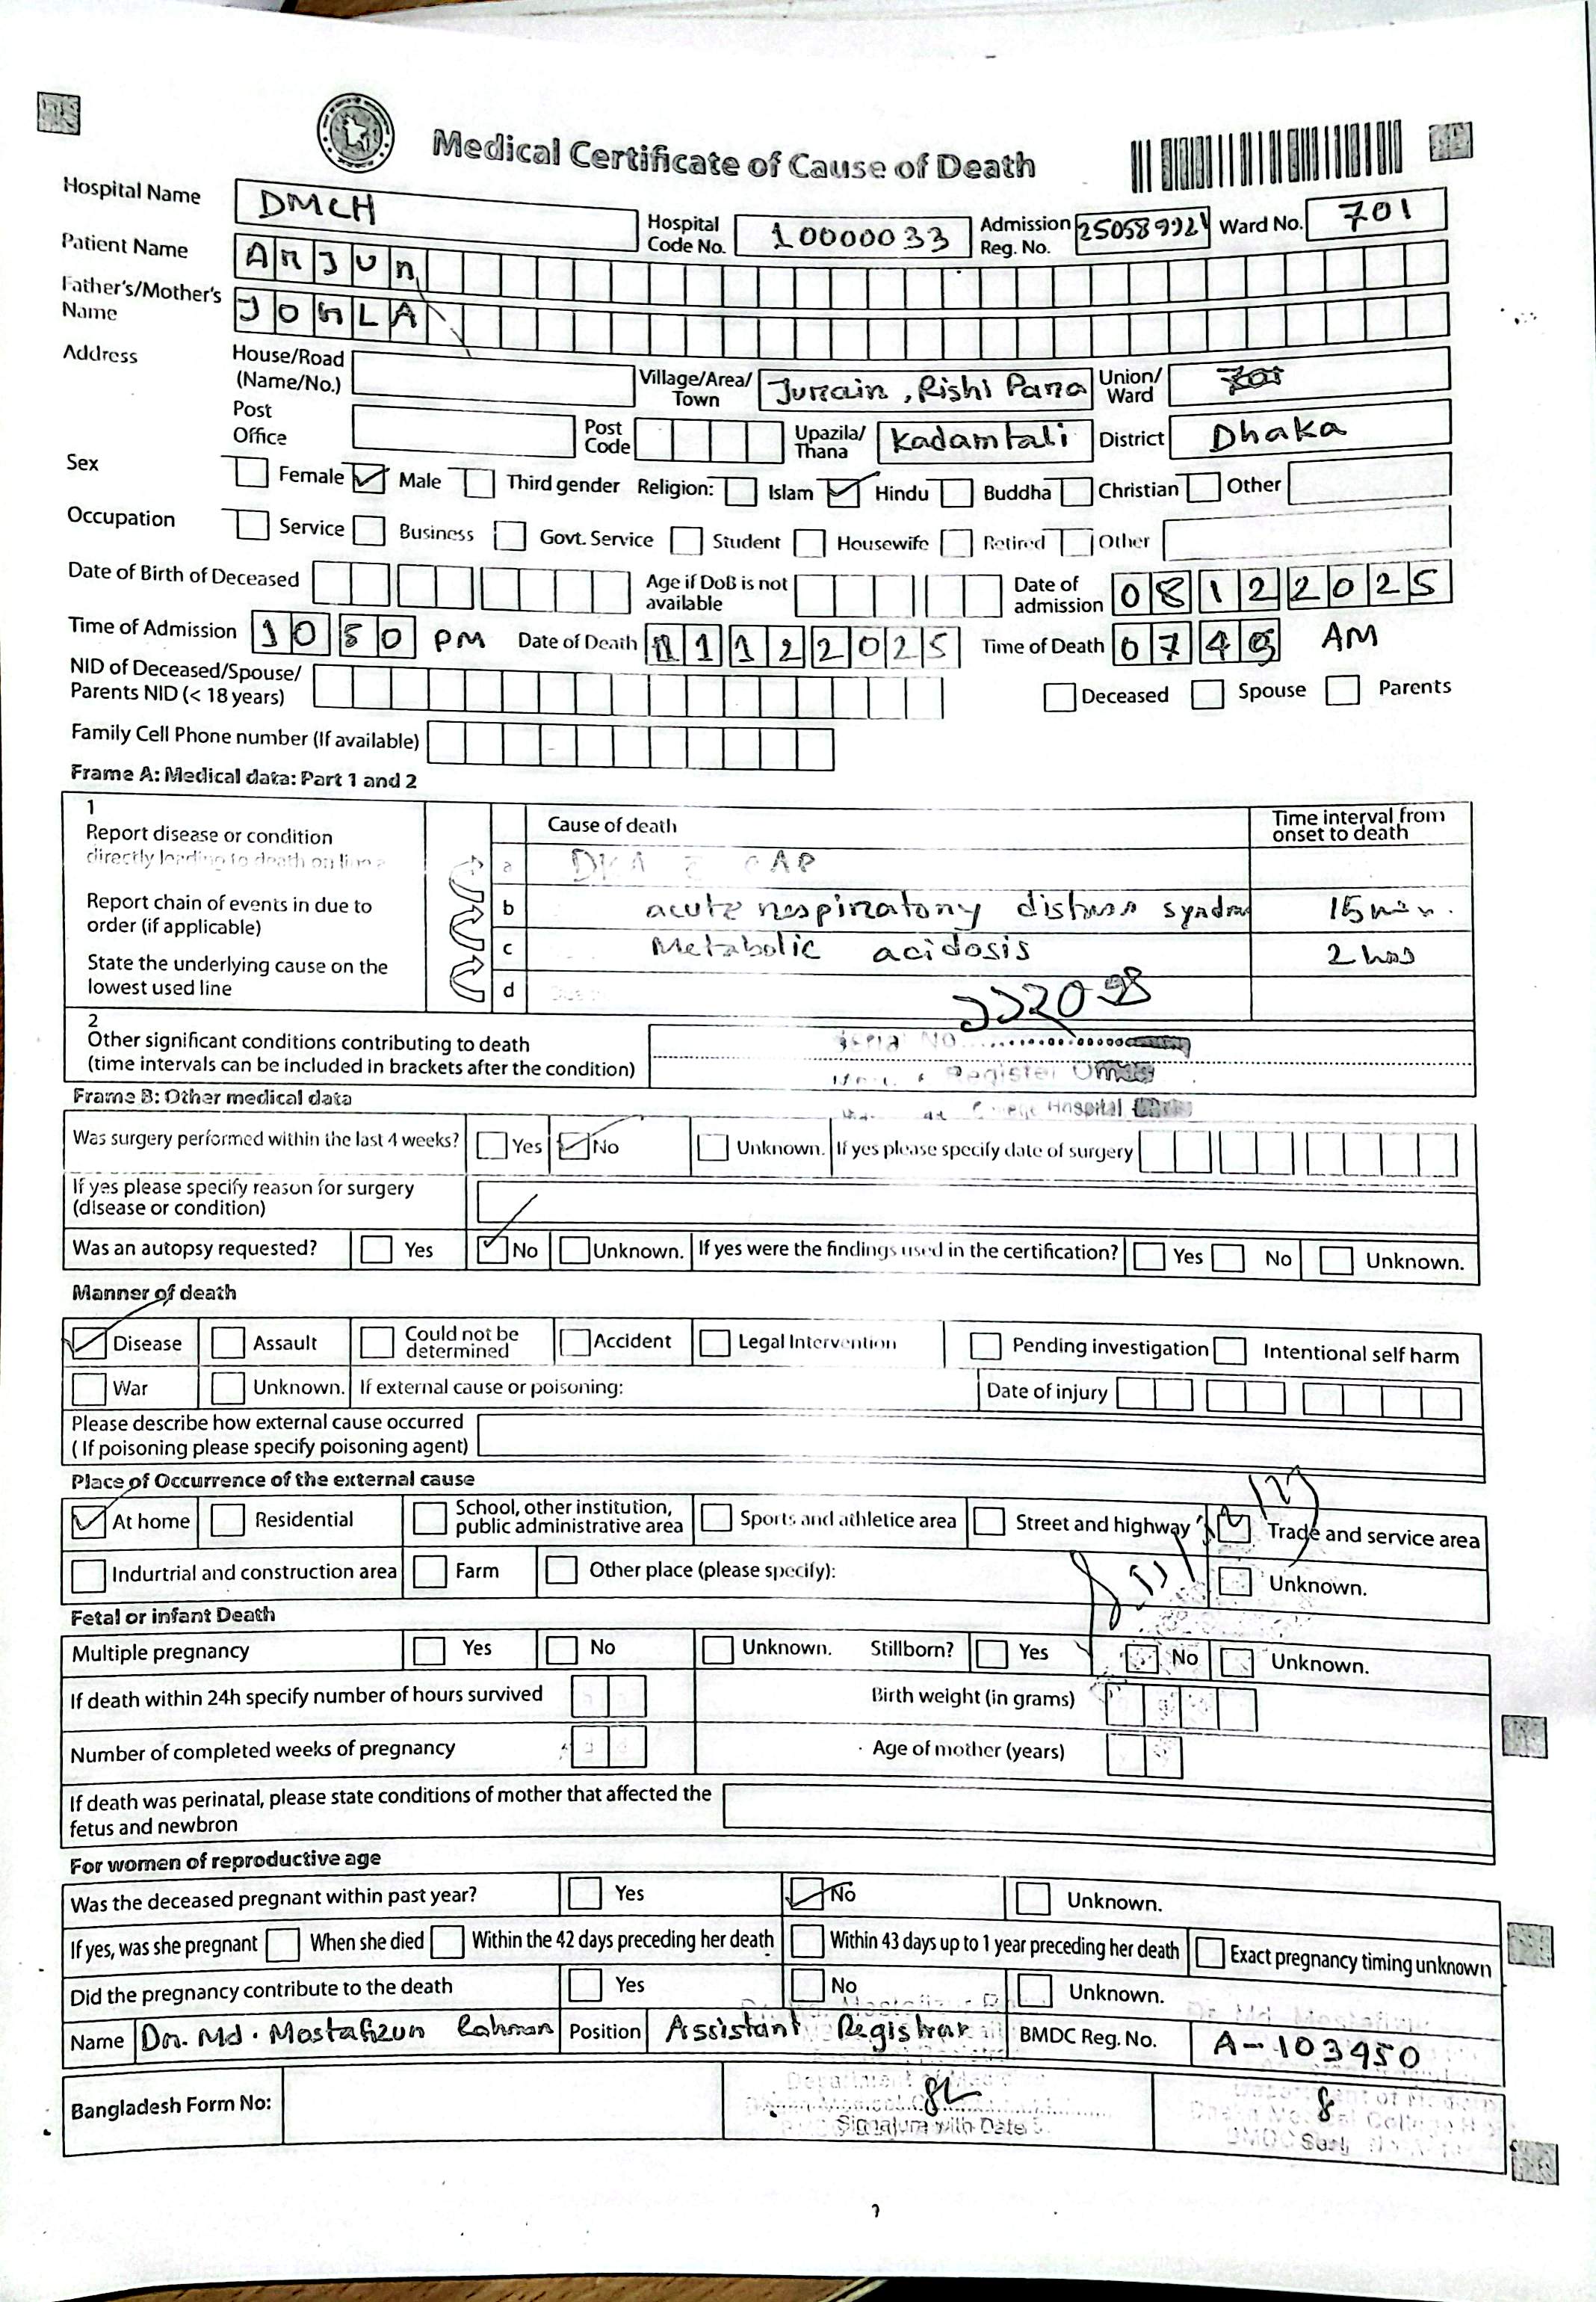 Medical Certificate of Cause of Death
Hospital Name DMCH Hospital Code No. 10000033 Admission Reg. No. Ward No. 701
Patient Name ARJUn
Father's/Mother's Name
Address House/Road (Name/No.) Village/Area/Town Jurain, Rishi Para Union/Ward
Post Office Post Code Upazila/Thana Kadamtali District Dhaka
Sex Female Male Third gender Religion: Islam Hindu Buddha Christian Other
Occupation Service Business Govt. Service Student Housewife Retired Other
Date of Birth of Deceased Age if DoB is not available Date of admission 08122025
Time of Admission 1050 PM Date of Death 11122025 Time of Death 0745 AM
NID of Deceased/Spouse/Parents NID (< 18 years) Deceased Spouse Parents
Family Cell Phone number (If available)
Frame A: Medical data: Part 1 and 2
1 Cause of death Time interval from onset to death
Report disease or condition
directly leading to death on line a
a DKA CAP
Report chain of events in due to order (if applicable)
b acute respiratory distress syndrom 15 min.
c Metabolic acidosis 2 hrs
State the underlying cause on the lowest used line
d
2
Other significant conditions contributing to death
(time intervals can be included in brackets after the condition)
Serial No
Register
College Hospital
Frame B: Other medical data
Was surgery performed within the last 4 weeks? Yes No Unknown. If yes please specify date of surgery
If yes please specify reason for surgery
(disease or condition)
Was an autopsy requested? Yes No Unknown. If yes were the findings used in the certification? Yes No Unknown.
Manner of death
Disease Assault Could not be determined Accident Legal Intervention Pending investigation Intentional self harm
War Unknown. If external cause or poisoning: Date of injury
Please describe how external cause occurred
( If poisoning please specify poisoning agent)
Place of Occurrence of the external cause
At home Residential School, other institution, public administrative area Sports and athletice area Street and highway Trade and service area
Indurtrial and construction area Farm Other place (please specify): Unknown.
Fetal or infant Death
Multiple pregnancy Yes No Unknown. Stillborn? Yes No Unknown.
If death within 24h specify number of hours survived Birth weight (in grams)
Number of completed weeks of pregnancy Age of mother (years)
If death was perinatal, please state conditions of mother that affected the
fetus and newbron
For women of reproductive age
Was the deceased pregnant within past year? Yes No Unknown.
If yes, was she pregnant When she died Within the 42 days preceding her death Within 43 days up to 1 year preceding her death Exact pregnancy timing unknown
Did the pregnancy contribute to the death Yes No Unknown.
Name Dr. Md. Mostafizur Rahman Position Assistant Registrar BMDC Reg. No. A-103950
Bangladesh Form No: Signature with Date Seal